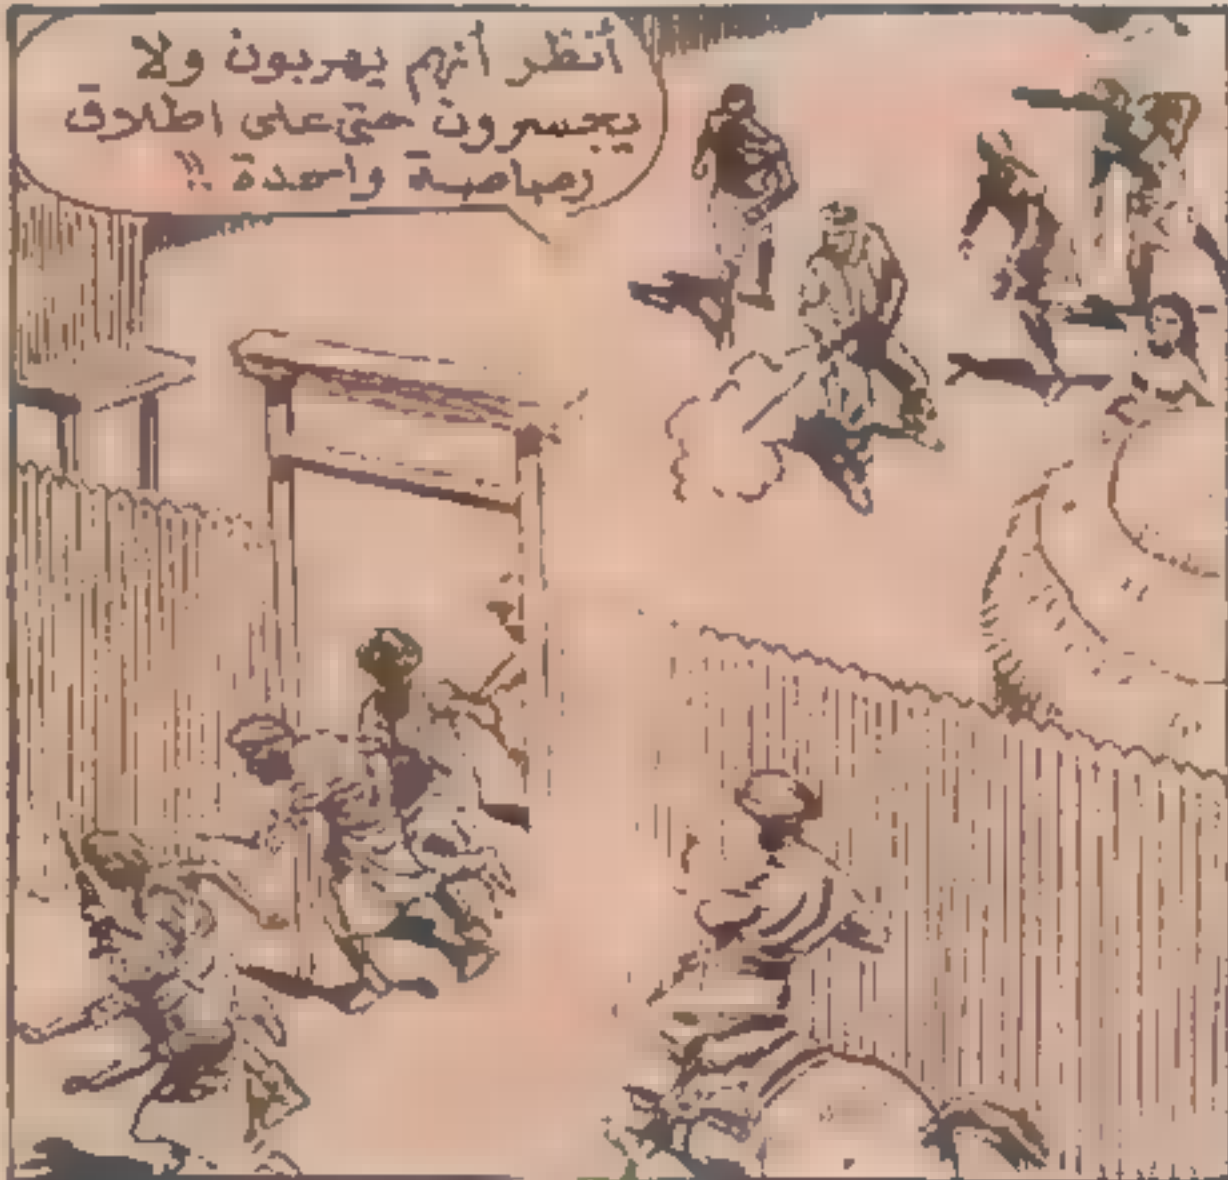 أنظر أنهم يهربون ولا
يجسرون حتى على اطلاق
رصاصة واحدة !!